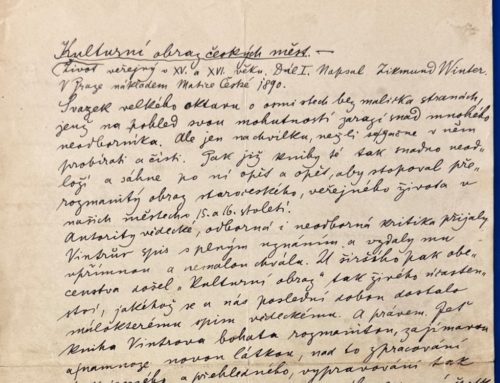 Kulturní obraz českých měst. —
Život veřejný v XV. a XVI. věku. Díl I. Napsal Zikmund Winter.
V Praze nákladem Matice České 1890.
Svazek velkého oktavu o osmi stech bez malička stranách,
jenž na pohled svou mohutností zarazí snad mnohého
neodborníka. Ale jen na chvilku, než li v něm
probírati a čísti. Pak již knihy té tak snadno neod-
loží a sáhne po ní opět a opět, aby stopoval pře-
rozmanitý obraz staročeského, veřejného života v
našich městech 15. a 16. století.
Autority vědecké, odborná i neodborná kritika přijaly
Vintrův spis s plným uznáním a vzdaly mu
upřímnou a nemalou chválu. U širšího pak obe-
censtva došel „Kulturní obraz" tak živého účasten-
ství, jakéhož se u nás poslední dobou dostalo
málokterému spisu vědeckému. A právem. Jeť
kniha Vintrova bohata rozmanitou, zajímavou
a namnoze novou látkou, nad to zpracování
a přehledného, vypravování tak